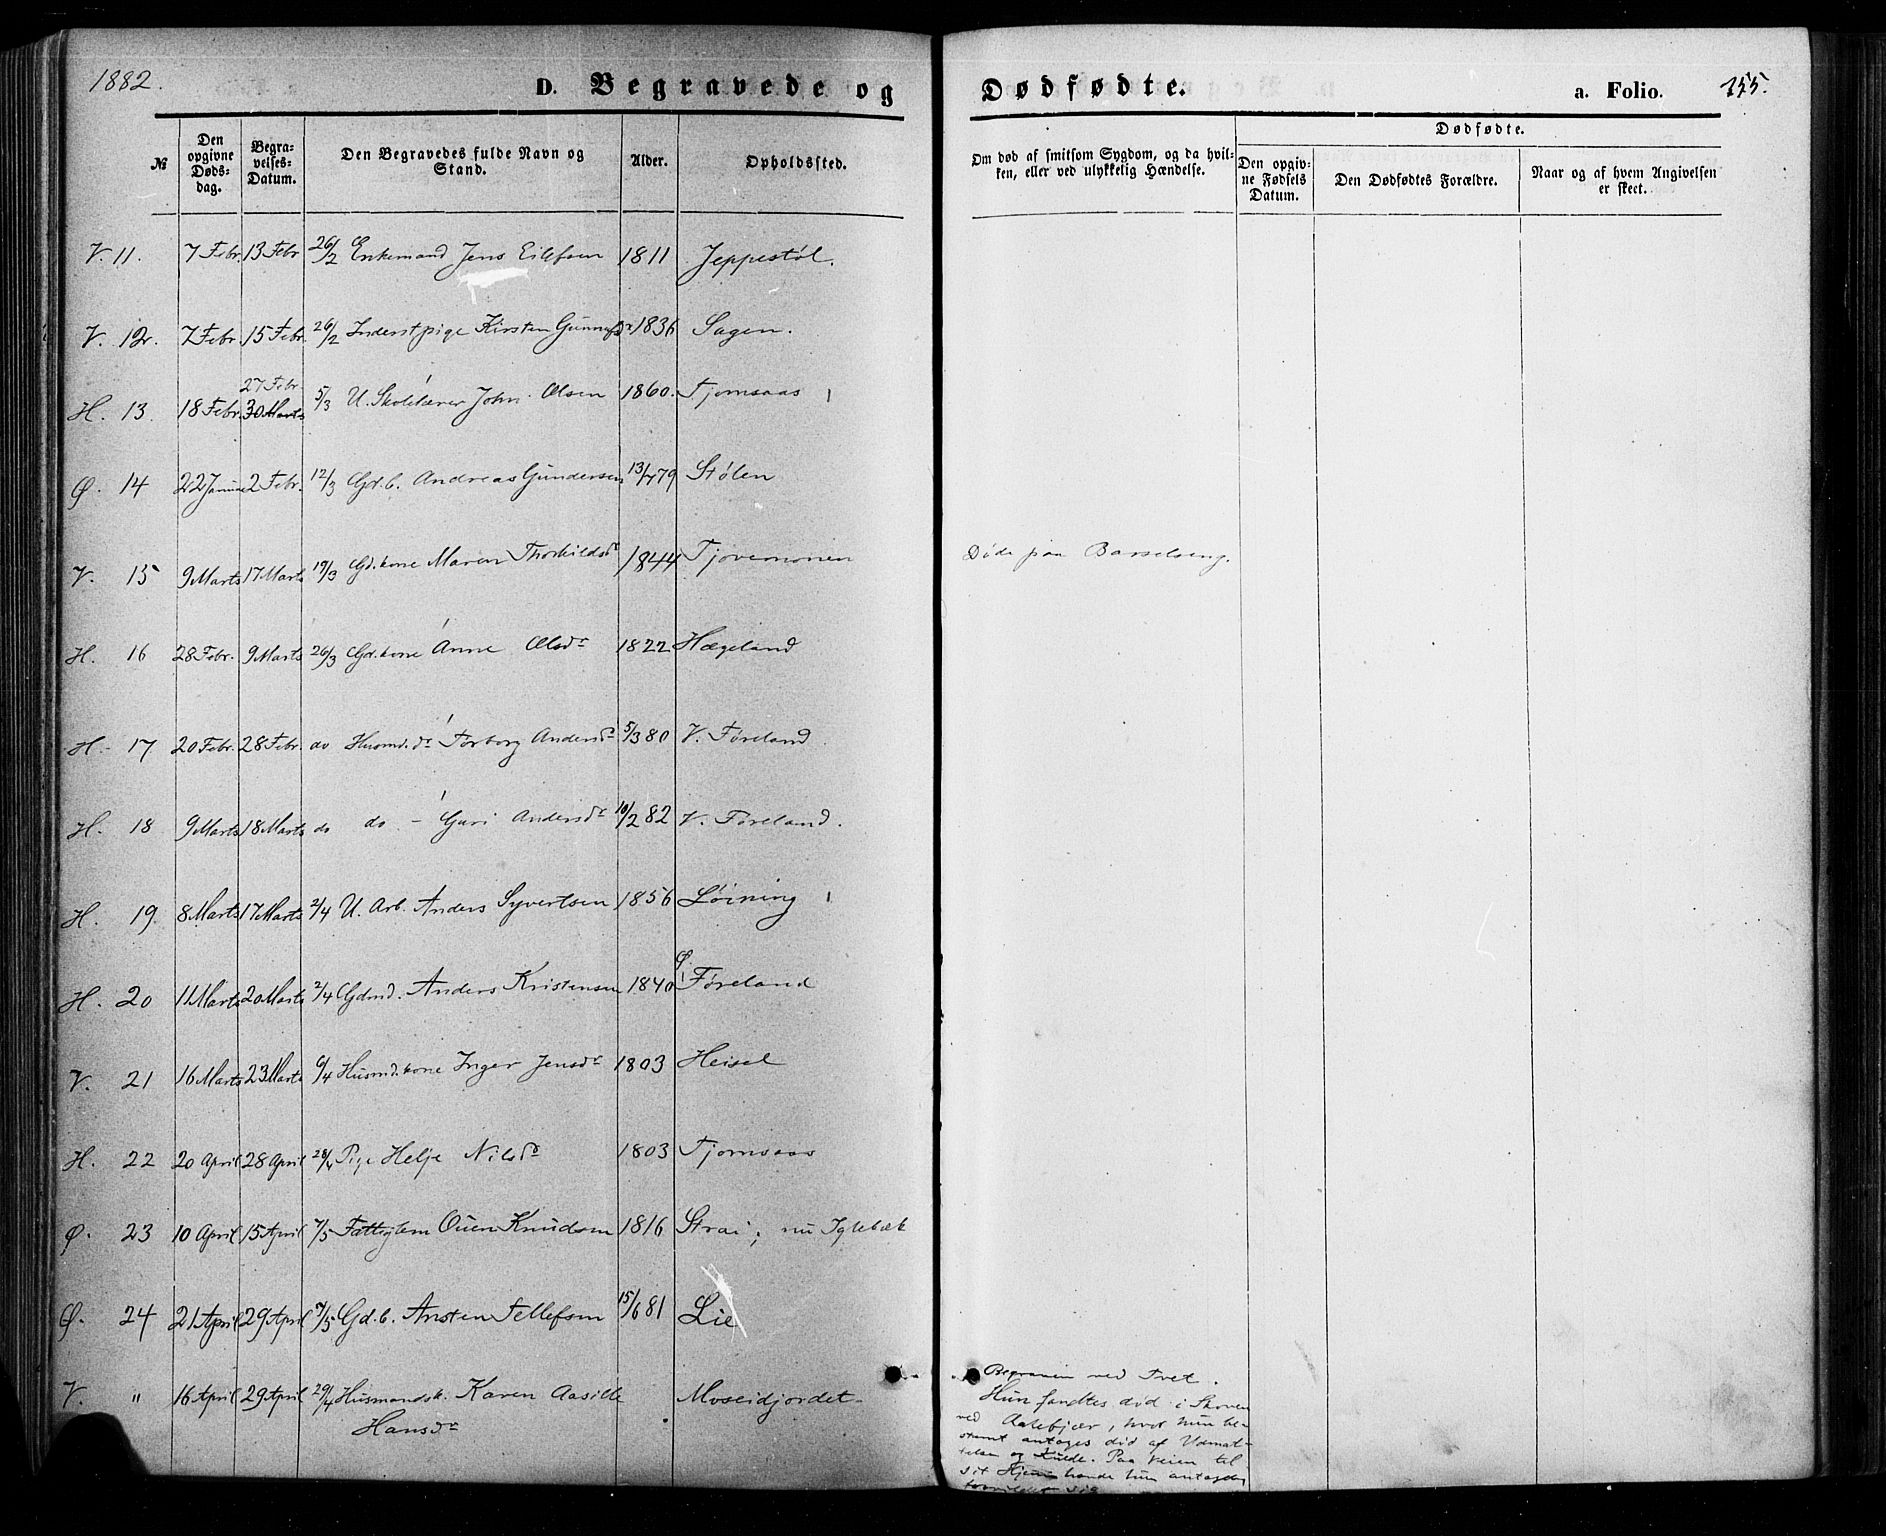 1882.
D. Begravede og Dødfødte. a. Folio. 255.
№ Den opgivne Dødsdag. Begravelses-Datum. Den Begravedes fulde Navn og Stand. Alder. Opholdssted. Om død af smitsom Sygdom, og da hvilken, eller ved ulykkelig Hændelse. Dødfødte. Den opgivne Fødsels Datum. Den Dødfødtes Forældre. Naar og af hvem Angivelsen er skeet.
V. 11. 7 Febr. 13 Febr 26/2 Enkemand Jens Eilefsen 1811 Jeppestøl.
V. 12. 7 Febr. 15 Febr. 26/2 Inderstpige Kirsten Gunnufsdr 1836 Sagen.
27 Febr.
H. 13. 18 Febr. 30 Marts 5/3 U. Skolelærer John Olsen 1860. Tjomsaas
Ø. 14 22 Januar 2 Febr. 12/3 Gd.b. Andreas Gundersen 13/4 79 Stølen
V. 15 9 Marts 17 Marts 19/3 Gd.kone Maren Thorkildsdr 1844 Tjovemonen Døde paa Barselseng.
H. 16 28 Febr. 9 Marts 26/3 Gd.kone Anne Olsdr 1822 Hægeland
H. 17 20 Febr. 28 Febr. do Husmd.dr Torborg Andersdr 5/3 80 V. Føreland
H. 18 9 Marts 18 Marts do do. - Guri Andersdr 10/2 82 V. Føreland.
H. 19. 8 Marts 17 Marts 2/4 U. Arb. Anders Syvertsen 1856 Løining
H. 20 11 Marts 20 Marts 2/4 Gdmd. Anders Kristensen 1840 Ø. Føreland
V. 21 16 Marts 23 Marts 6/4 Husmd.kone Inger Jensdr 1803 Heisel
H. 22 20 April 28 April 28/4 Pige Helje Nilsdr 1803 Tjomsaas
Ø. 23 10 April 15 April 7/5 Fattiglem Ouen Knudsen 1816 Strai; nu Iglebæk
Ø. 24 21 April 29 April 7/5 Gd.b. Ansten Tellefsen 15/6 81 Lie
V. " 16 April 29 April 29/4 Husmandsk. Karen Aasille Moseidjordet
Hansdr
Begraven ved Tvet.
Hun fandtes død i Skoven
ved Aalebjær, hvor hun be-
stemt antages død af Udmat-
telse og Kulde. Paa Veien til
sit Hjem havde hun antagelig
forvildet sig